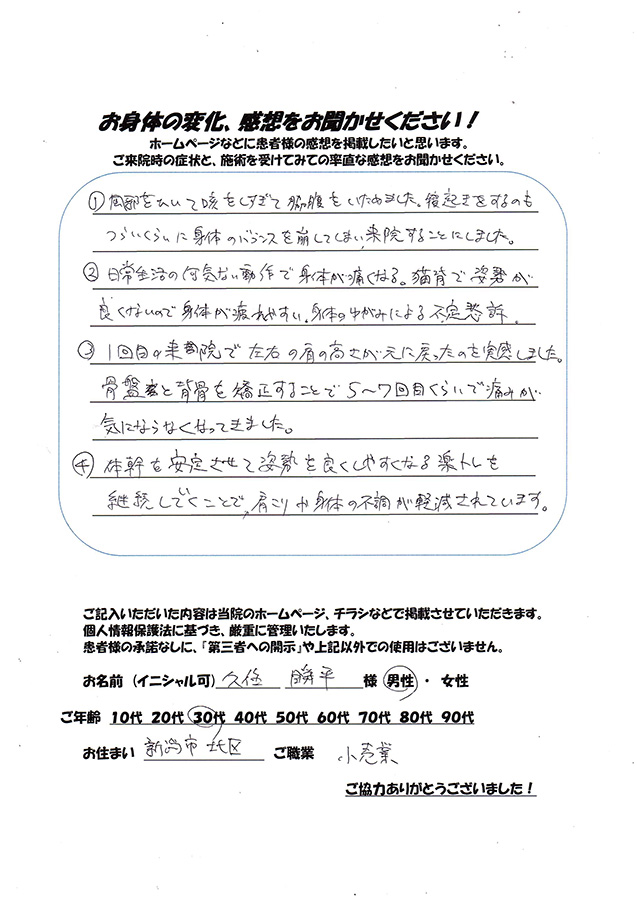 お身体の変化、感想をお聞かせください！
ホームページなどに患者様の感想を掲載したいと思います。
ご来院時の症状と、施術を受けてみての率直な感想をお聞かせください。
① 風邪をひいて咳をしすぎて脇腹をいためました。寝起きをするのも
つらいくらいに身体のバランスを崩してしまい、来院することにしました。
② 日常生活の何気ない動作で身体が痛くなる。猫背で姿勢が
良くないので身体が疲れやすい。身体のゆがみによる不定愁訴。
③ 1回目の来院で左右の肩の高さが元に戻ったのを実感しました。
骨盤と背骨を矯正することで5～7回目くらいで痛みが
気にならなくなってきました。
④ 体幹を安定させて姿勢を良くしやすくなる楽トレを
継続していくことで、肩こりや身体の不調が軽減されています。
ご記入いただいた内容は当院のホームページ、チラシなどで掲載させていただきます。
個人情報保護法に基づき、厳重に管理いたします。
患者様の承諾なしに、「第三者への開示」や上記以外での使用はございません。
お名前（イニシャル可） 久保 勝平 様 男性・女性
ご年齢 10代 20代 30代 40代 50代 60代 70代 80代 90代
お住まい 新潟市北区 ご職業 小売業
ご協力ありがとうございました！